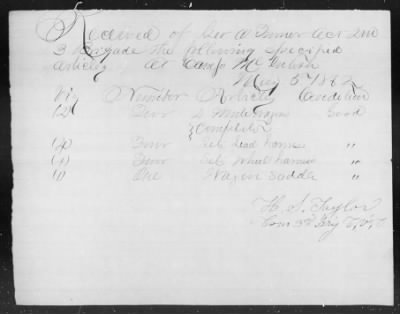 Received of Geo A Turner Act 2nd
3 Brigade the following specified
articles, At Camp McIntosh
May 5 1862
Viz Number Articles Condition
(2) Two 2 Horse Wagons Good
Complete
Four Set Lead harness "
Four Set Wheel harness "
(1) One Wagon Saddle "
H. S. Taylor
Com 3rd Brig